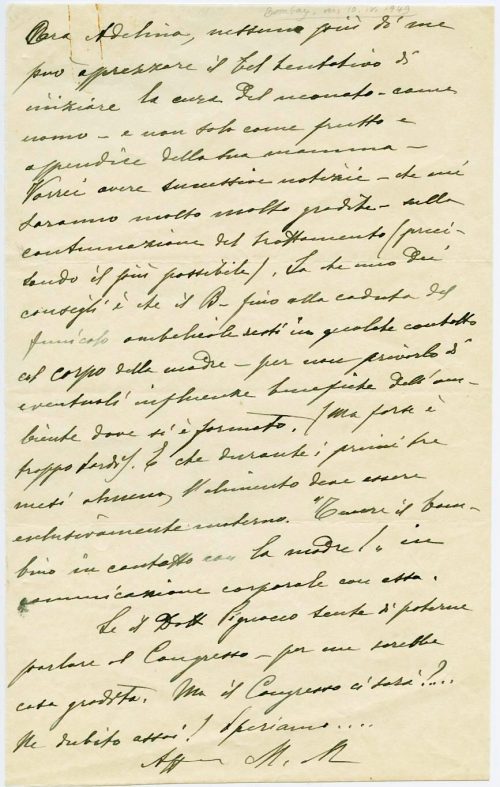 Bombay, 10.IV.1949
Cara Adelina, nessuno più di me
può apprezzare il bel tentativo di
iniziare la cura del neonato - come
uomo - e non solo come frutto e
appendice della sua mamma -
Vorrei avere successive notizie - che mi
saranno molto molto gradite - sulla
continuazione del trattamento (preci-
sando il più possibile). La che uno dei
consigli è che il B- fino alla caduta del
funicolo ombelicale resti in qualche contatto
col corpo della madre - per non privarlo di
eventuali influenze benefiche dell'am-
biente dove si è formato. (Ma forse è
troppo tardi). E che durante i primi tre
mesi almeno, l'alimento deve essere
esclusivamente materno. "Tenere il bam-
bino in contatto con la madre!" in
comunicazione corporale con essa.
Se il Dott sente di poterne
parlare al Congresso - per me sarebbe
cosa gradita. Ma il Congresso ci sarà?...
Ne dubito assai! Speriamo....
Aff M. M